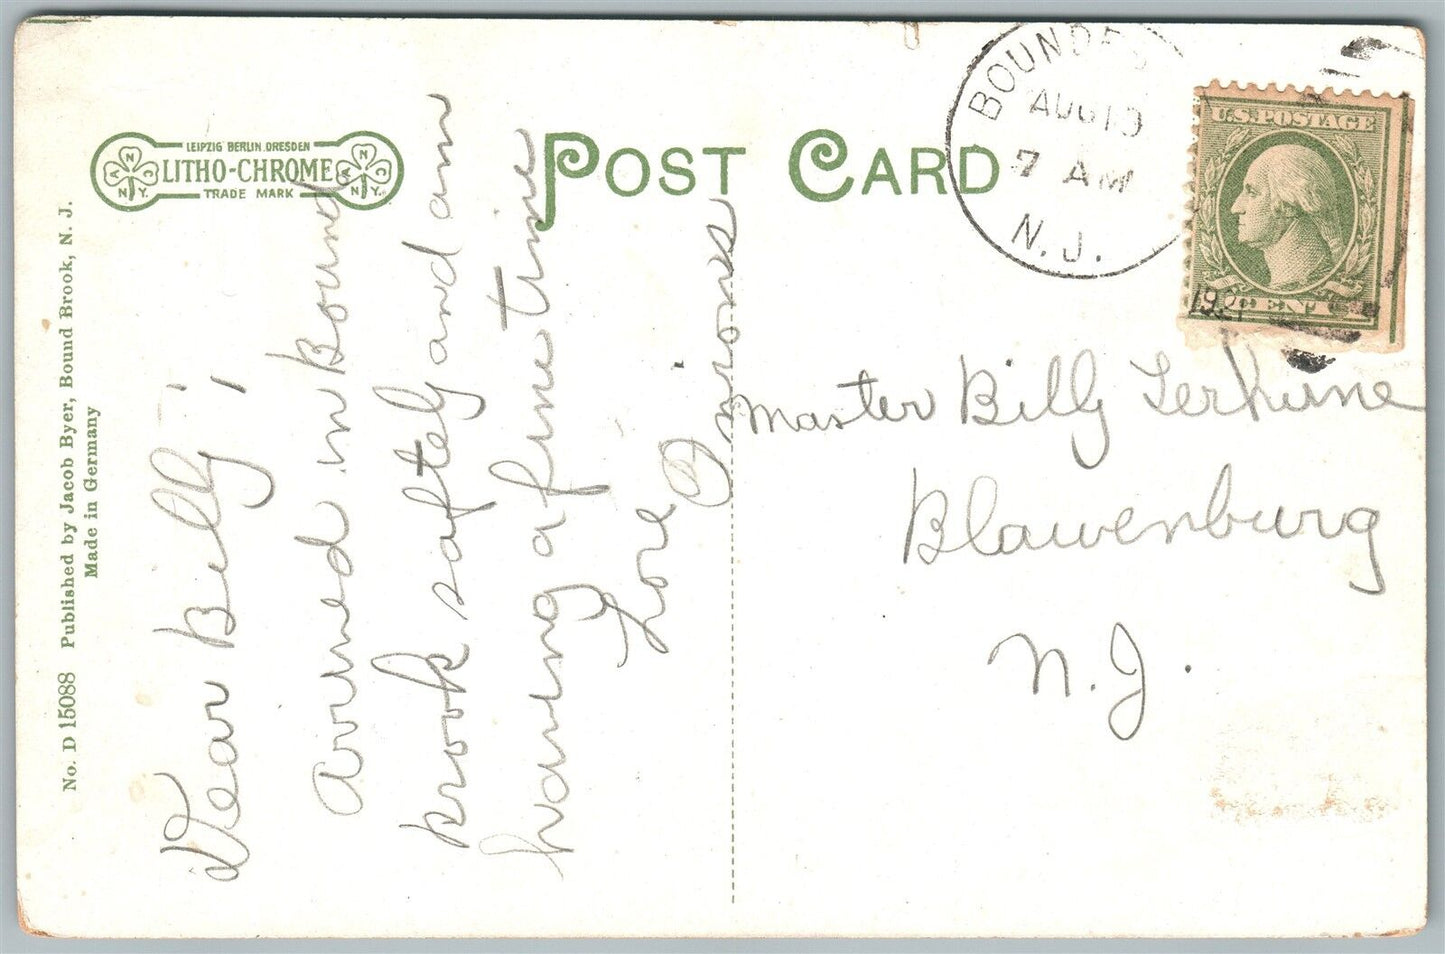 LEIPZIG BERLIN DRESDEN
LITHO-CHROME
TRADE MARK
A N C N.Y.
A N C N.Y.
POST CARD
No. D 15088 Published by Jacob Byer, Bound Brook, N. J.
Made in Germany
AUG 19
7 AM
N. J.
U.S. POSTAGE
CENT
Dear Billy;
Arrived in Bound
Brook saftely and am
having a fine time
Love
Master Billy Terhune
Blawenburg
N. J.